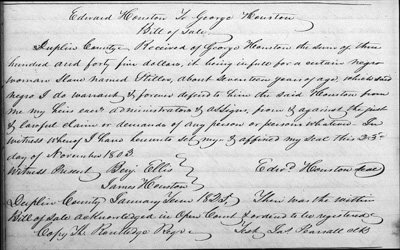 Edward Houston To George Houston
Bill of Sale
Duplin County Received of George Houston the sum of three
hundred and forty five dollars, it being in full for a certain negro
woman Slave named Stiller, about Seventeen years of age, which said
negro I do warrant & forever defend to him the said Houston from
me my heirs exrs administrators & assigns, from & against the just
& lawful claim or demands of any person or persons whatever. In
witness whereof I have hereunto set my & affixed my seal this 23rd
day of November 1803.
Witness Present Benj Ellis Edwd Houston seal
James Houston
Duplin County January Term 1825. Then was the within
Bill of Sale acknowledged in Open Court & ordered to be registered
Copy Routledge Regr. Test Jas Pearsall clk